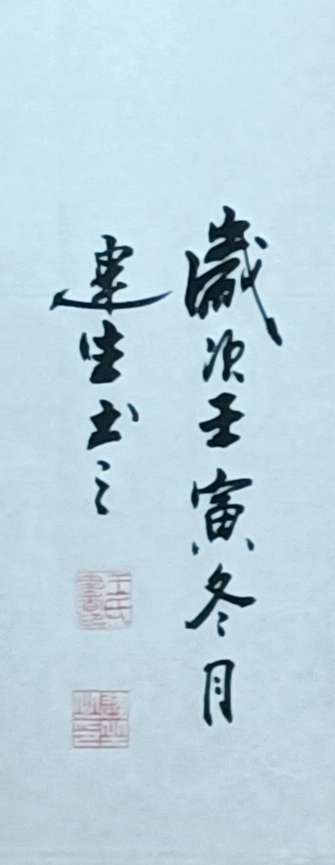 歲次壬寅冬月
建生书之